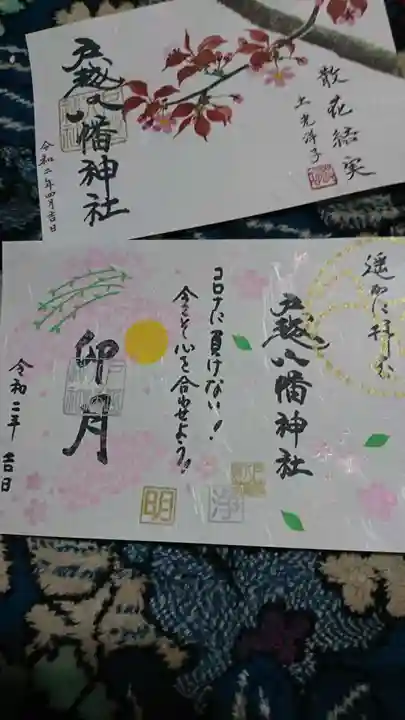 散花結実
土光洋子
戸越八幡神社
令和二年四月吉日
遥かに拝む
戸越八幡神社
コロナに負けない!
今こそ心を合わせよう!!
卯月
令和二年 吉日
浄
明